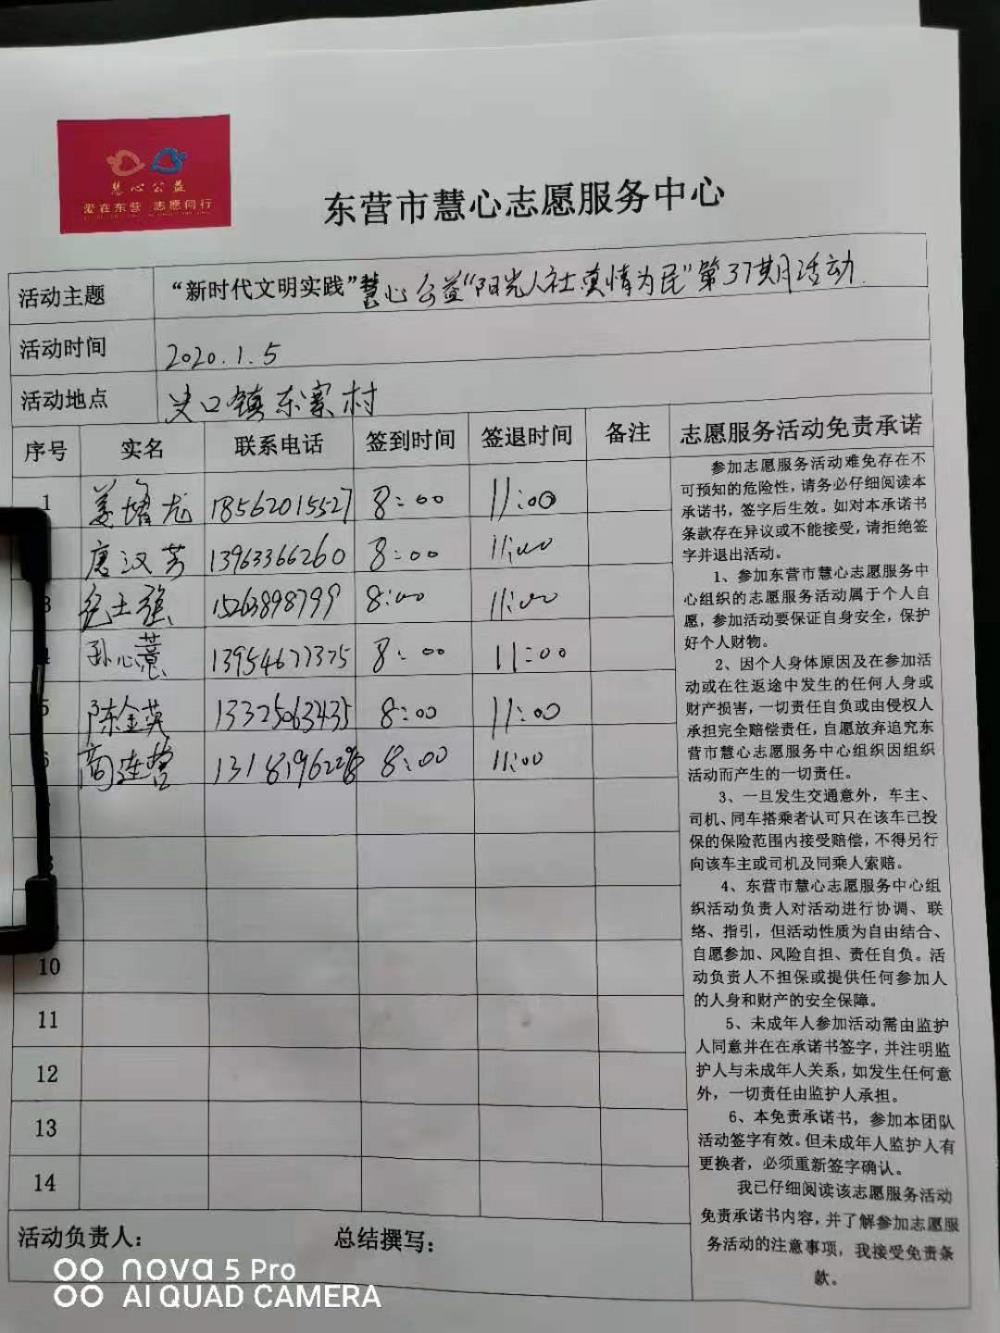 慧心公益
爱在东营 志愿同行
东营市慧心志愿服务中心
活动主题 “新时代文明实践”慧心公益“阳光人社真情为民”第37期活动
活动时间 2020.1.5
活动地点 史口镇东寨村
序号 实名 联系电话 签到时间 签退时间 备注
1 姜增龙 18562015527 8:00 11:00
唐汉芳 13963366260 8:00 11:00
3 15263898799 8:00 11:00
4 孙心慧 13954677375 8:00 11:00
5 陈金英 13325063435 8:00 11:00
6 商连营 8:00 11:00
10
11
12
13
14
志愿服务活动免责承诺
参加志愿服务活动难免存在不
可预知的危险性，请务必仔细阅读本
承诺书，签字后生效。如对本承诺书
条款存在异议或不能接受，请拒绝签
字并退出活动。
1、参加东营市慧心志愿服务中
心组织的志愿服务活动属于个人自
愿，参加活动要保证自身安全，保护
好个人财物。
2、因个人身体原因及在参加活
动或在往返途中发生的任何人身或
财产损害，一切责任自负或由侵权人
承担完全赔偿责任，自愿放弃追究东
营市慧心志愿服务中心组织因组织
活动而产生的一切责任。
3、一旦发生交通意外，车主、
司机、同车搭乘者认可只在该车已投
保的保险范围内接受赔偿，不得另行
向该车主或司机及同乘人索赔。
4、东营市慧心志愿服务中心组
织活动负责人对活动进行协调、联
络、指引，但活动性质为自由结合、
自愿参加、风险自担、责任自负。活
动负责人不担保或提供任何参加人
的人身和财产的安全保障。
5、未成年人参加活动需由监护
人同意并在在承诺书签字，并注明监
护人与未成年人关系，如发生任何意
外，一切责任由监护人承担。
6、本免责承诺书，参加本团队
活动签字有效。但未成年人监护人有
更换者，必须重新签字确认。
我已仔细阅读该志愿服务活动
免责承诺书内容，并了解参加志愿服
务活动的注意事项，我接受免责条
款。
活动负责人： 总结撰写：
nova 5 Pro
AI QUAD CAMERA